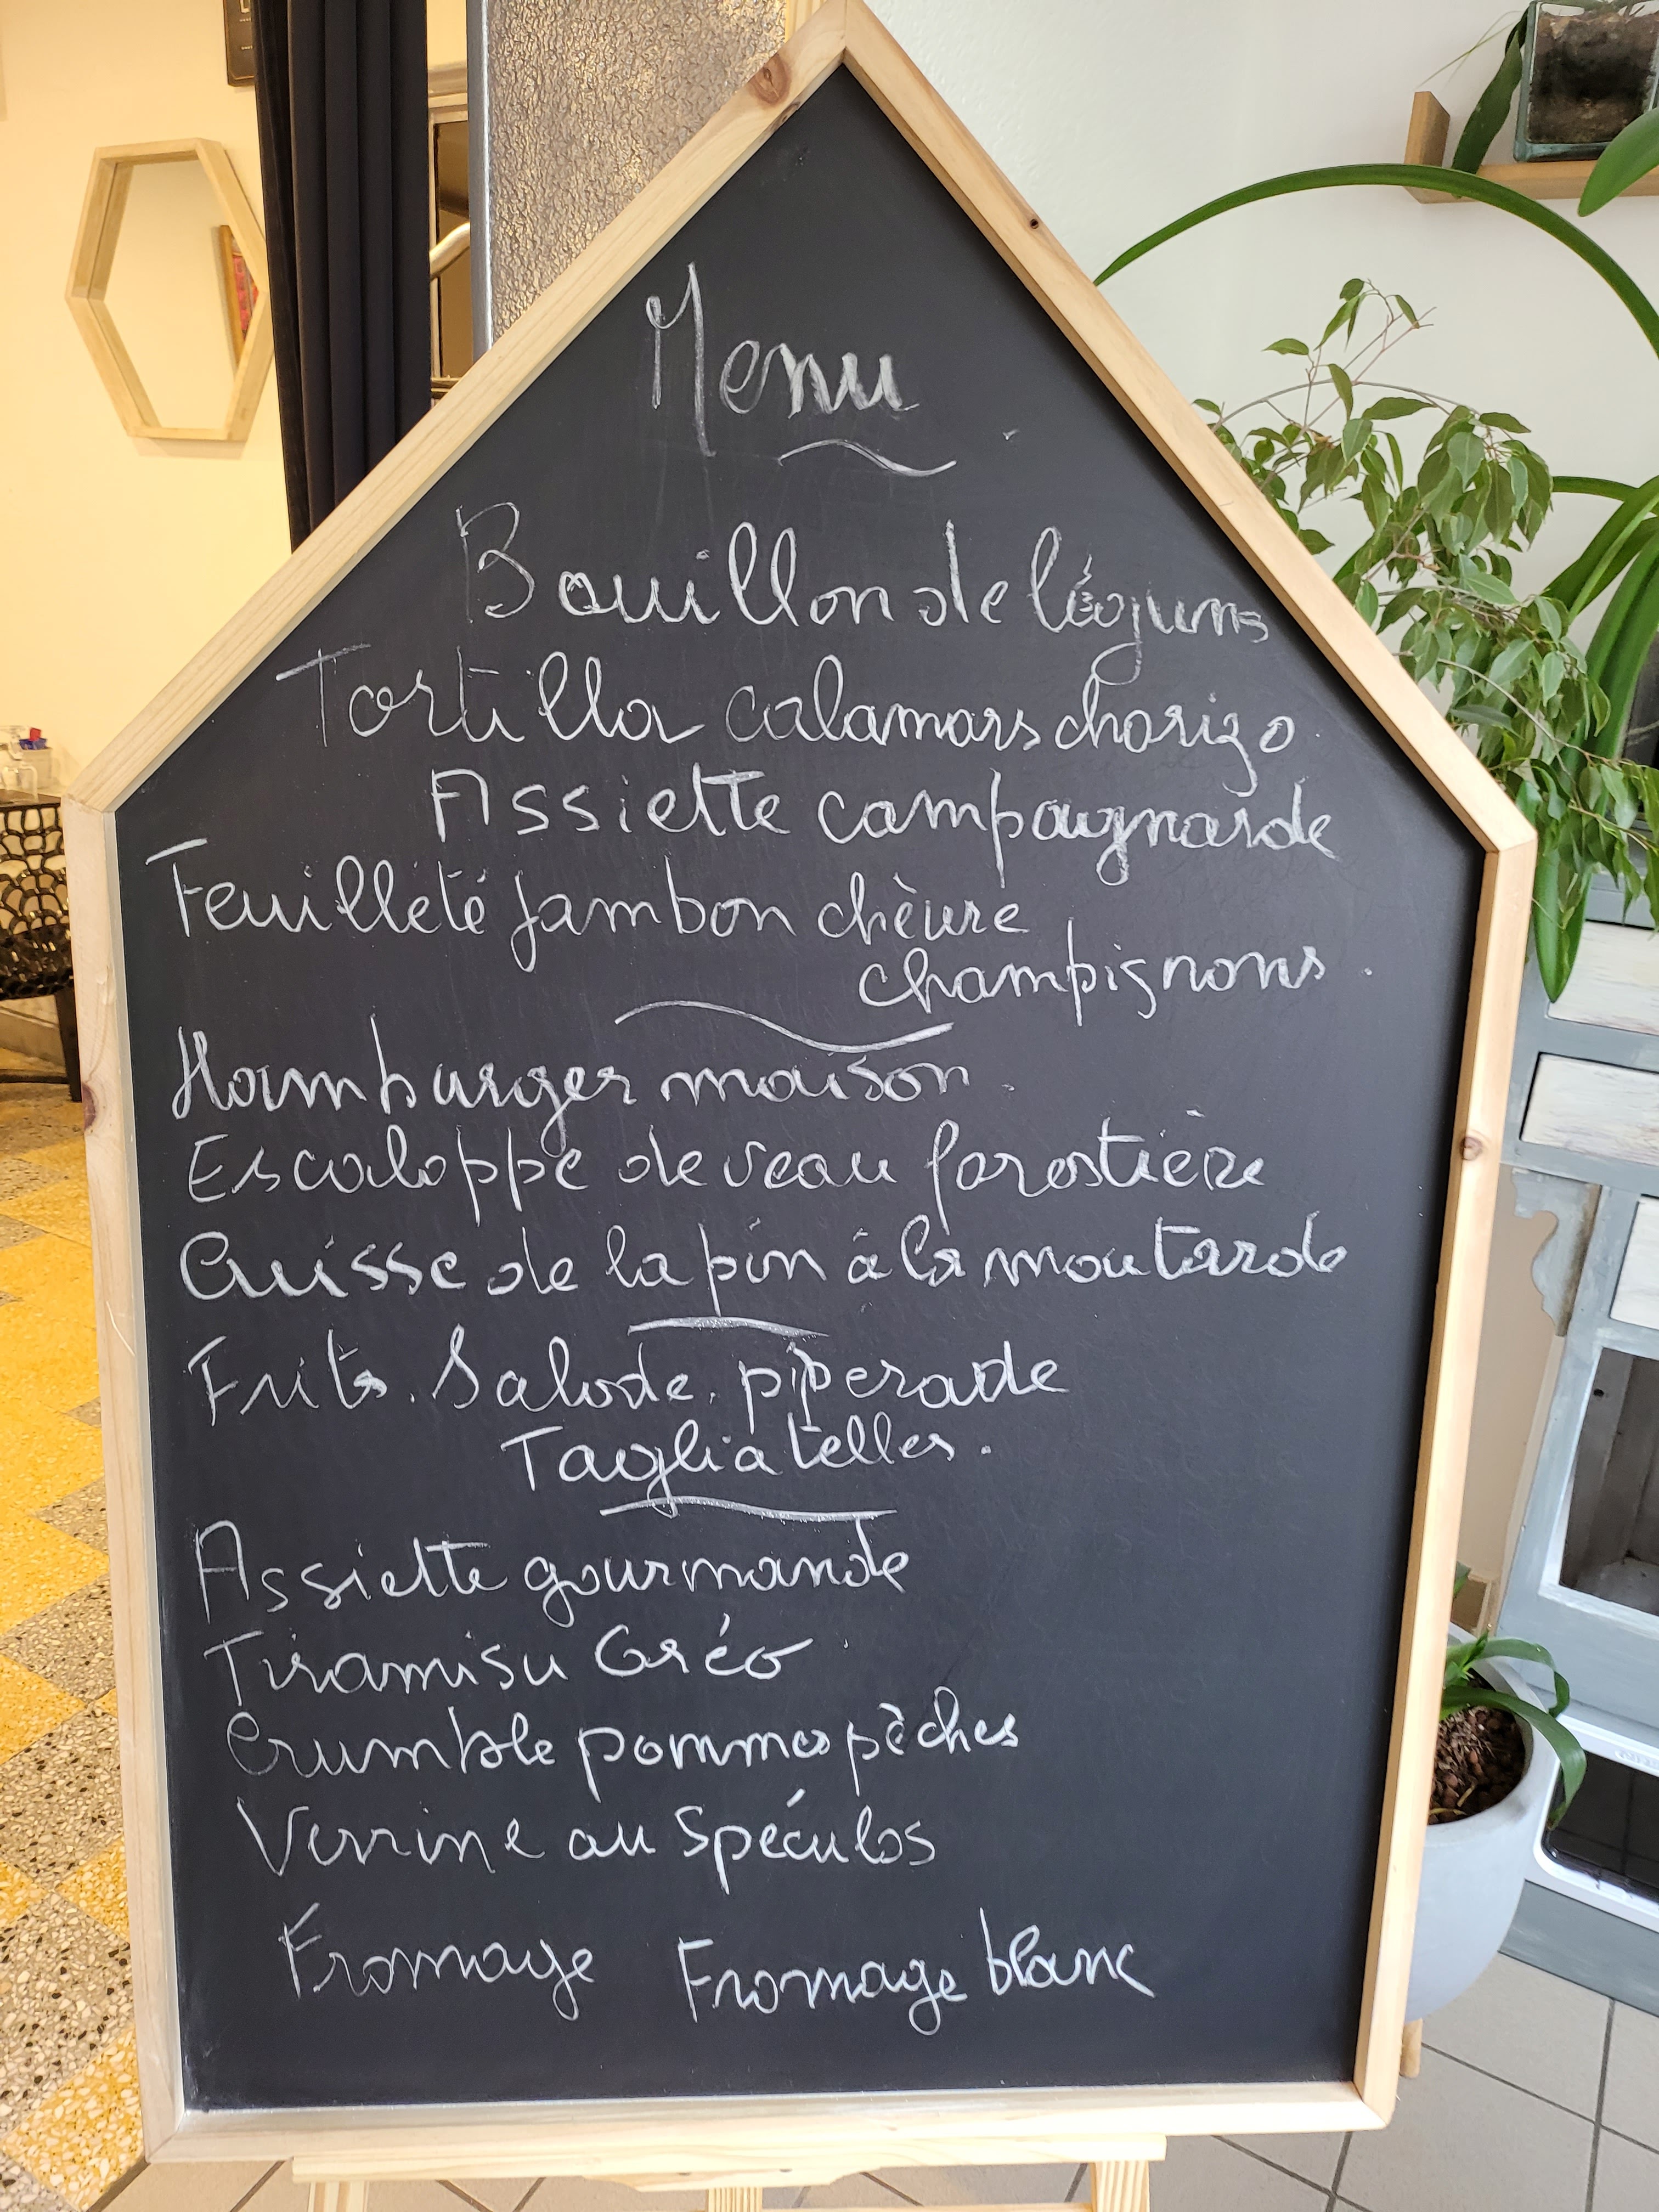 Menu
Bouillon de légumes
Tortilla calamars chorizo
Assiette campagnarde
Feuilleté jambon chèvre
champignons.
Hamburger maison.
Escaloppe de veau forestière
Cuisse de lapin à la moutarde
Frites. Salade. piperade
Tagliatelles.
Assiette gourmande
Tiramisu Gréo
Crumble pommes pèches
Verrine au Spéculos
Fromage Fromage blanc